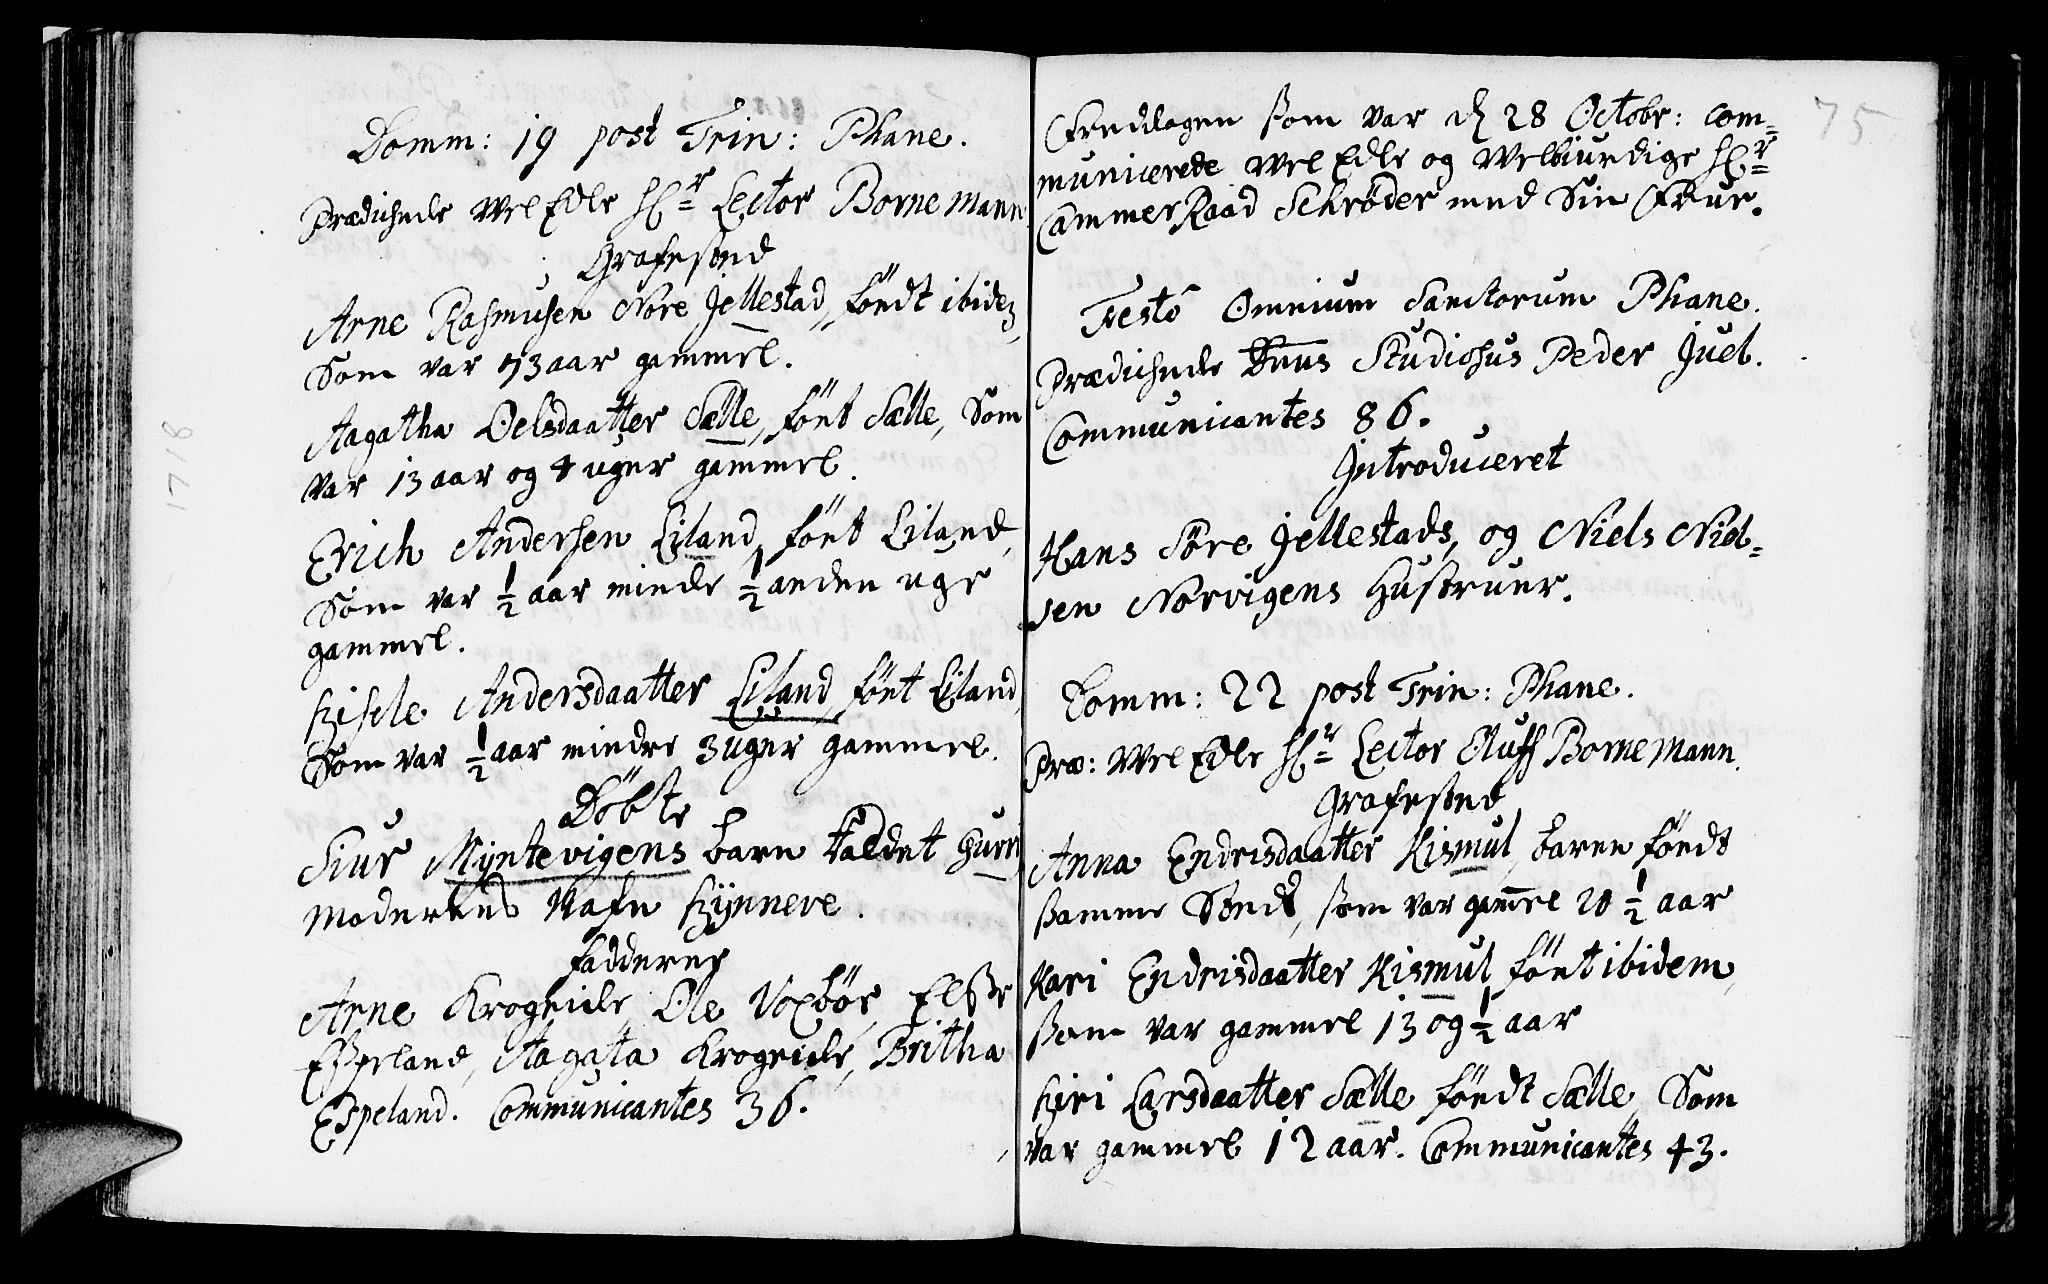 Domm: 19 post Trin: Phane.
Prædichede Wel Edle Hr Lector Bornemann
Grafested
Arne Rasmusen Nore Jellestad, födt ibidem,
Som var 73 aar gammel.
Aagatha Oelsdaatter Sælle, fönt Sælle, Som
var 13 aar og 4 uger gammel.
Erich Andersen Liland, fönt Liland,
Som var ½ aar minde ½ anden uge
gammel.
Andersdaatter Liland, fönt Liland,
Som var ½ aar mindre 3 uger gammel.
Döbte
Siur Myntevigens barn kaldet Guri
Moderens Nafn
Fadderer
Arne Krogeide, Ole Voxbör, Elsse
Espeland, Aagata Krogeide, Britha
Espeland. Communicantes 36.
1718
75
Freddagen som var d 28 Octobr: com-
municerede Wel Edle og Welbiurdige Hr
Cammer Raad Schröder med Sin Frue.
Festo Omnium Sanctorum Phane.
Prædichede Dnus Studiosus Peder Juel.
Communicantes 86.
Introduceret
Hans Söre Jellestads, og Niels Niel-
sen Norvigens Hustruer.
Domm: 22 post Trin: Phane.
Præ: Wel Edle Hr Lector Oluff Bornemann.
Grafested
Anna Endrisdaatter Kismul, baren födt
samme Sted, som var gamel 20 ½ aar
Kari Endrisdaatter Kismul, fönt ibidem,
som var gammel 13 og ½ aar
Siri Larsdaatter Sælle födt Sælle, Som
var gammel 12 aar. Communicantes 43.